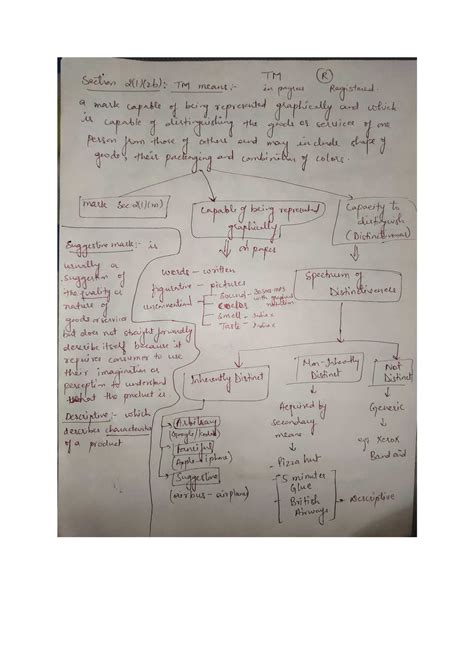 Section 2(1)(zb): TM means:-
TM
in progress
R
Registered
a mark capable of being represented graphically and which
is capable of distinguishing the goods or services of one
person from those of others and may include shape of
goods, their packaging and combination of colors.
mark Sec 2(1)(m)
Capable of being represented
graphically
Capacity to
distinguish
(Distinctiveness)
on paper
words - written
figurative - pictures
unconventional
Sound - 30sec mp3
with graphical
notation
Colors
Smell - India x
Taste - India x
Suggestive mark:- is
usually a
suggestion of
the quality or
nature of
goods or service
but does not straight forwardly
describe itself because it
requires consumer to use
their imagination or
perception to understand
what the product is.
Descriptive:- which
describes characteristics
of a product
Spectrum of
Distinctiveness
Inherently Distinct
Non-Inherently
Distinct
Not
Distinct
Arbitrary
Fanciful
(Apple - iphone)
Suggestive
(airbus - airplane)
Acquired by
secondary
means
- Pizza hut
- 5 minutes
Glue
- British
Airways
Descriptive
Generic
eg Xerox
Band aid